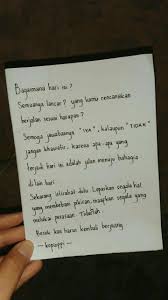 Bagaimana hari ini ?
Semuanya lancar ? yang kamu rencanakan
berjalan sesuai harapan ?
Semoga jawabannya " IYA ", kalaupun "TIDAK"
jangan khawatir, karena apa-apa yang
terjadi hari ini adalah jalan menuju bahagia
di lain hari.
Sekarang istirahat dulu. Lepaskan segala hal
yang membebani pikiran, maupun segala yang
melukai perasaan. Tidurlah
Besok kau harus kembali berjuang
- kopiuppi -